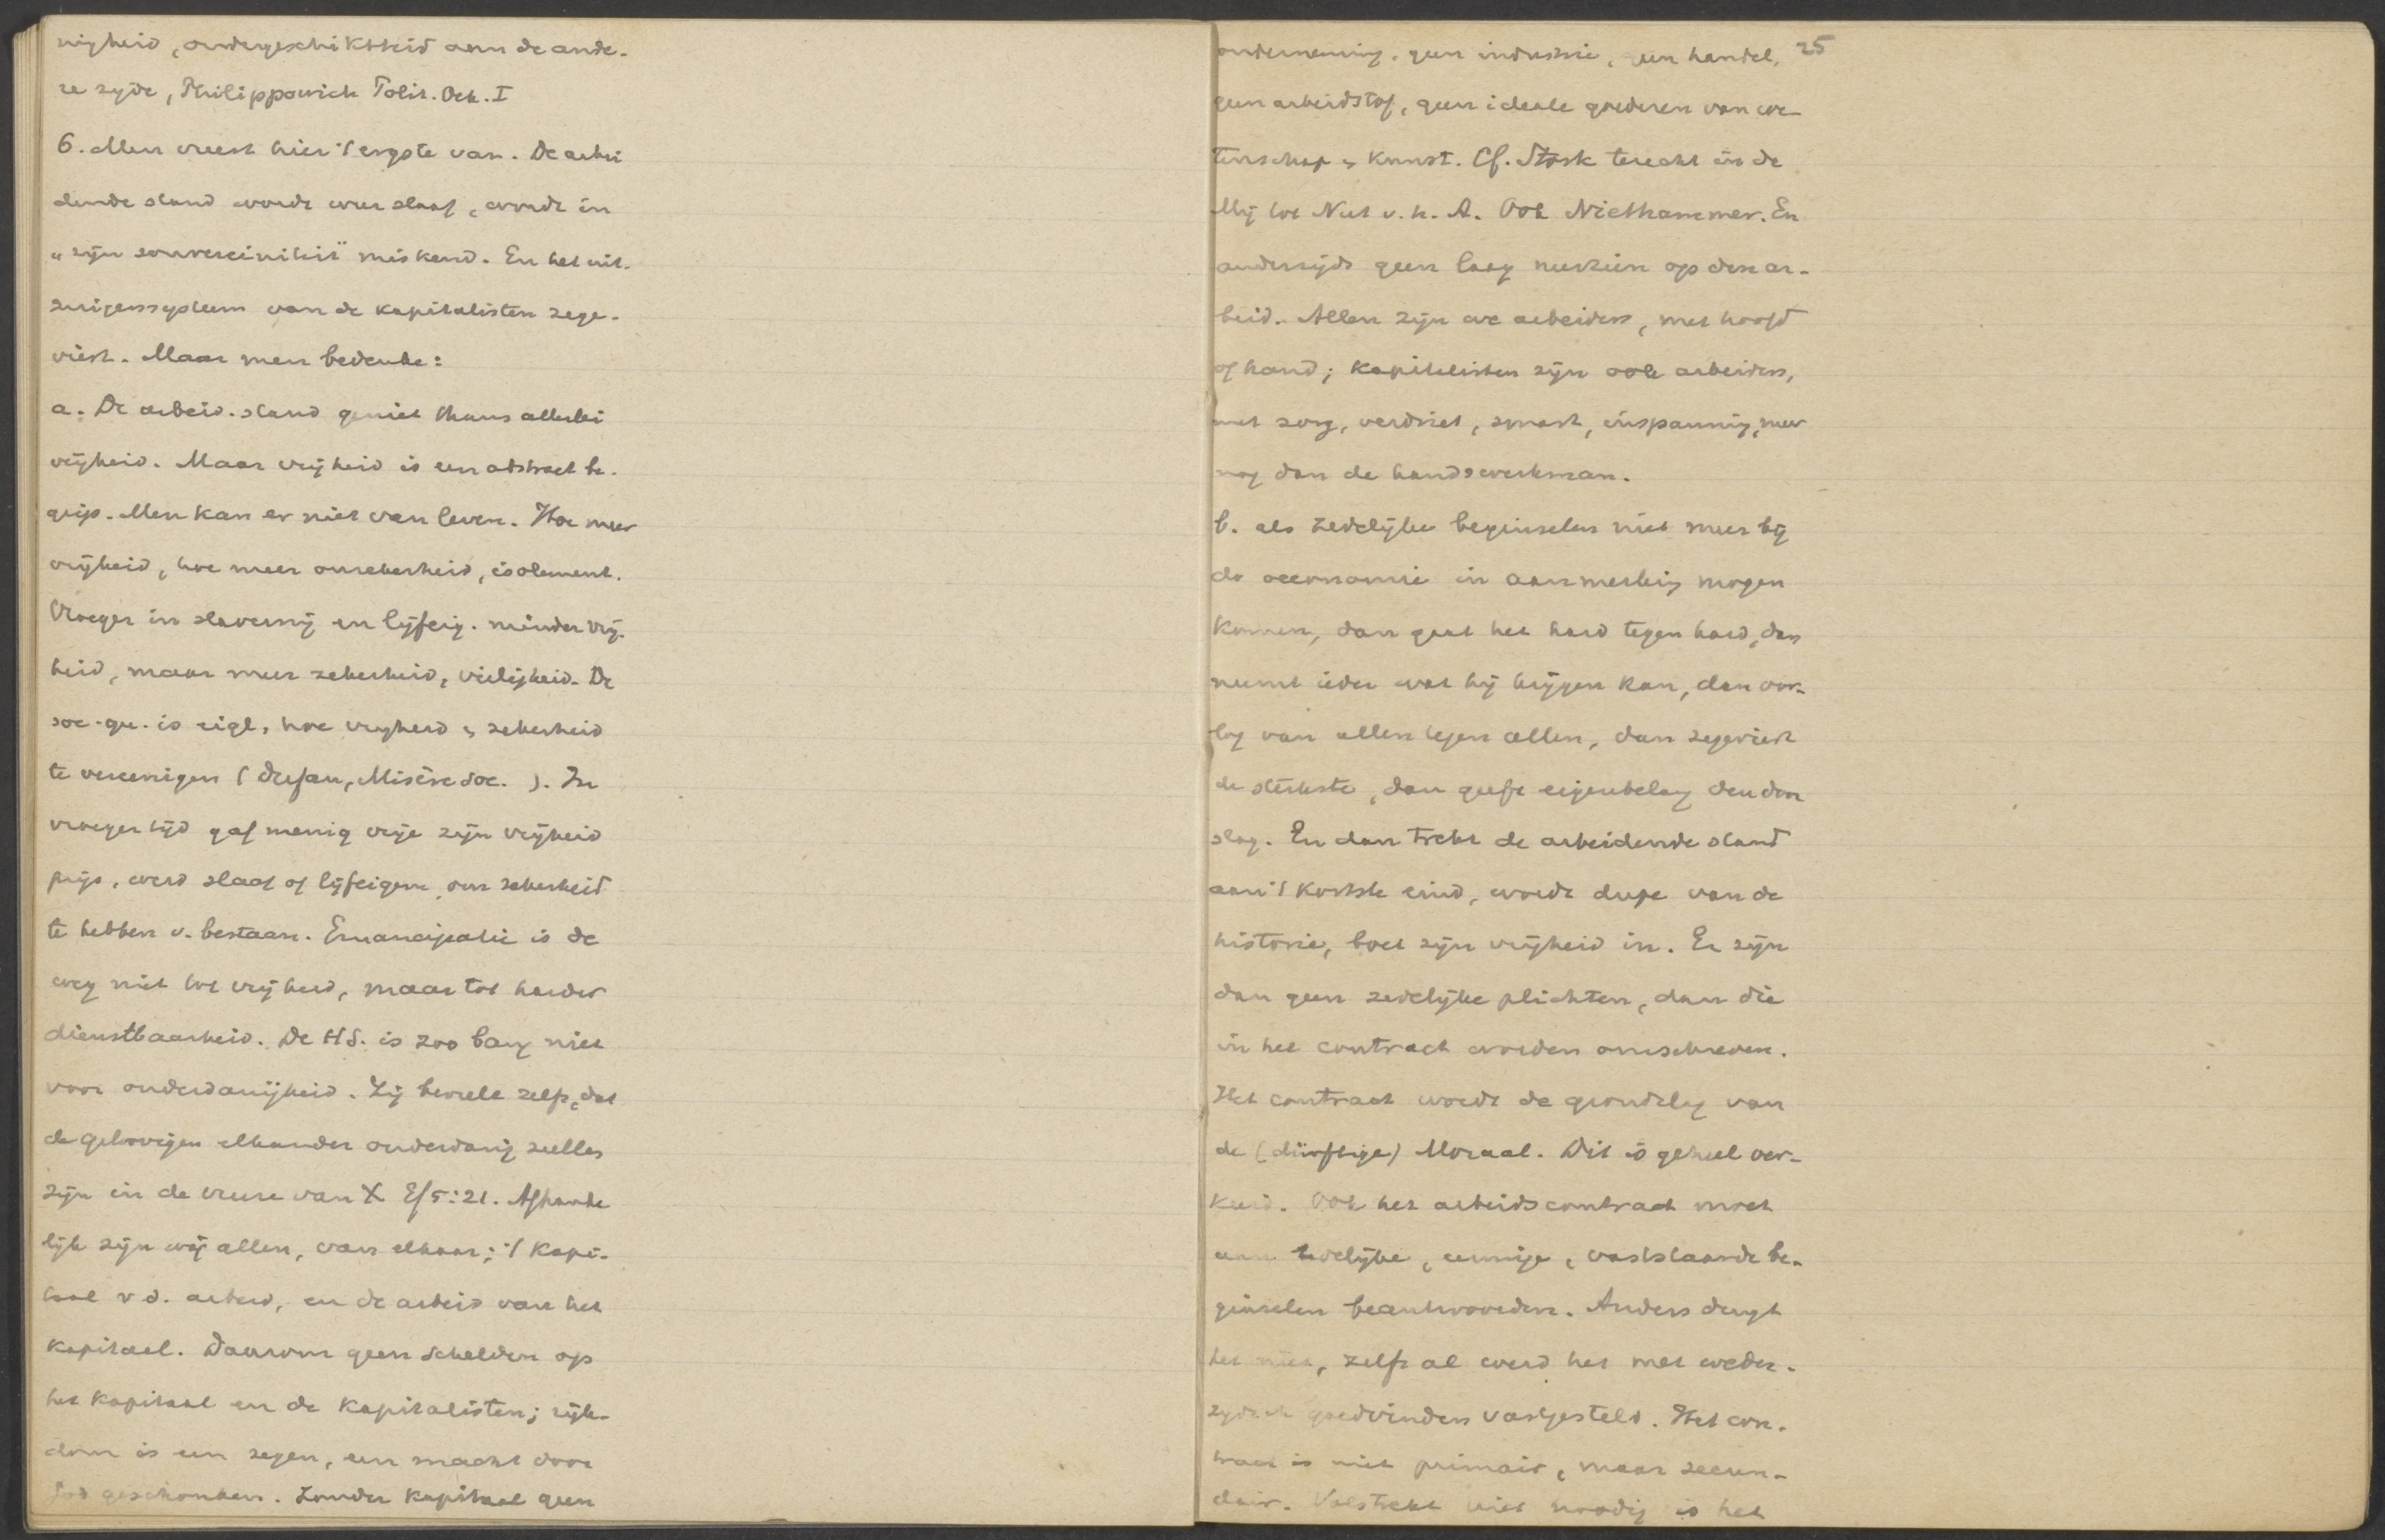 nigheid, ondergeschiktheid aan de ande-
re zijde, Philippowich Polit. Oek. I
6. Men vreest hier 't ergste van. De arbei
dende stand wordt weer slaaf, wordt in
„zijn souvereiniteit" miskend. En het uit-
zuigerssysteem van de kapitalisten zege-
viert. Maar men bedenke:
a. De arbeid. stand geniet thans allerlei
vrijheid. Maar vrijheid is een abstract be-
grip. Men kan er niet van leven. Hoe meer
vrijheid, hoe meer onzekerheid, isolement.
Vroeger in slavernij en lijfeig. minder vrij-
heid, maar meer zekerheid, veiligheid. De
soc. qu. is eigl, hoe vrijheid & zekerheid
te vereenigen (, Misère soc. ). In
vroeger tijd gaf menig vrije zijn vrijheid
prijs, werd slaaf of lijfeigene, om zekerheid
te hebben v. bestaan. Emancipatie is de
weg niet tot vrijheid, maar tot harder
dienstbaarheid. De HS. is zoo bang niet
voor onderdanigheid. Zij beveelt zelfs, dat
de geloovigen elkander onderdanig zullen
zijn in de vreeze van X Ef 5:21. Afhanke
lijk zijn wij allen, van elkaar; 't kapi-
taal v d. arbeid, en de arbeid van het
kapitaal. Daarom geen schelden op
het kapitaal en de kapitalisten; rijk-
dom is een zegen, een macht door
God geschonken. Zonder kapitaal geen
onderneming, geen industrie, geen handel, 25
geen arbeidstof, geen ideale goederen van we-
tenschap & kunst. Cf. Stork terecht in de
Mij tot Nut v. h. A. Ook Niethammer. En
anderzijds geen laag neerzien op den ar-
beid. Allen zijn we arbeiders, met hoofd
of hand; kapitalisten zijn ook arbeiders,
met zorg, verdriet, smart, inspanning, meer
nog dan de handswerkman.
b. als zedelijke beginselen niet meer bij
de oeconomie in aanmerking mogen
komen, dan gaat het hard tegen hard, dan
neemt ieder wat hij krijgen kan, dan oor-
log van allen tegen allen, dan zegeviert
de sterkste, dan geeft eigenbelang den door
slag. En dan trekt de arbeidende stand
aan 't kortste eind, wordt dupe van de
historie, boet zijn vrijheid in. Er zijn
dan geen zedelijke plichten, dan die
in het contract worden omschreven.
Het contract wordt de grondslag van
de (dürftige) Moraal. Dit is geheel ver-
keerd. Ook het arbeidscontract moet
aan zedelijke, eeuwige, vaststaande be-
ginselen beantwoorden. Anders deugt
het niet, zelfs al werd het met weder-
zijdsch goedvinden vastgesteld. Het con-
tract is niet primair, maar secun-
dair. Volstrekt niet noodig is het